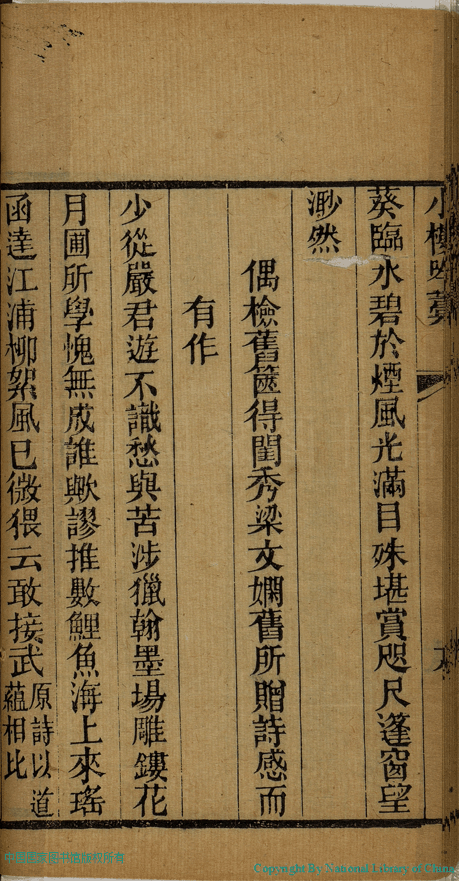 小樓吟藁
葵臨水碧於煙風光滿目殊堪賞咫尺蓬窗望
渺然
偶檢舊篋得閨秀梁文嫻舊所贈詩感而
有作
少從嚴君遊不識愁與苦涉獵翰墨場雕鏤花
月圃所學愧無成誰歟謬推數鯉魚海上來瑤
函達江浦柳絮風已微猥云敢接武原詩以道
蘊相比
Copyright By National Library of China